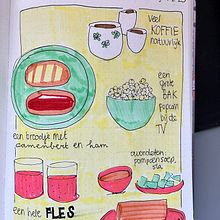 veel
KOFFIE
natuurlijk
een
grote
BAK
popcorn
bij de
TV
een broodje met
camembert en ham
avondeten:
pompoensoep,
sla
een hele FLES